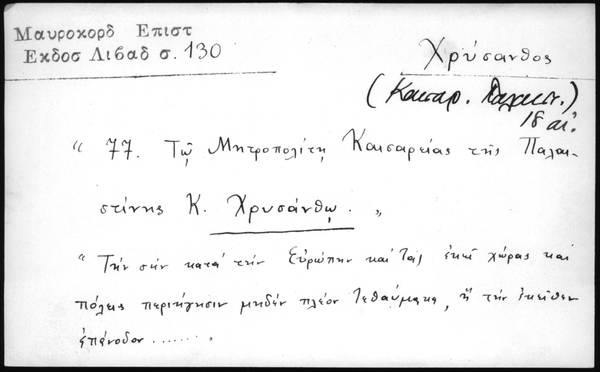 Μαυροκορδ Επιστ
Εκδοσ Λιβαδ σ. 130
Χρύσανθος
(Καισαρ. Παλαιστ.)
18 αἰ.
“ 77. Τῷ Μητροπολίτῃ Καισαρείας τῆς Παλαι-
στίνης Κ. Χρυσάνθῳ. „
“ Τὴν σὴν κατὰ τὴν Εὐρώπην καὶ τὰς ἐκεῖ χώρας καὶ
πόλεις περιήγησιν μηδὲν πλέον τεθαύμακα, ἢ τὴν ἐκεῖθεν
ἐπάνοδον ....... „